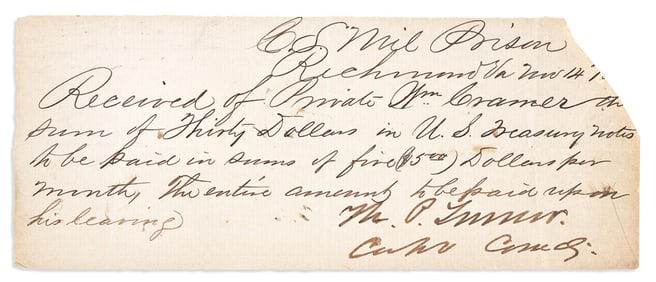 C. S. Mil Prison
Richmond Va Nov 14
Received of Private Wm Cramer th
sum of Thirty Dollars in U. S. Treasury notes
to be paid in sums of five ($5 00) Dollars per
month, The entire amount to be paid upon
his leaving
Th. P. Turner.
Capt Comdg.